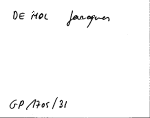 DE MOL Jacques
GP 1705/31